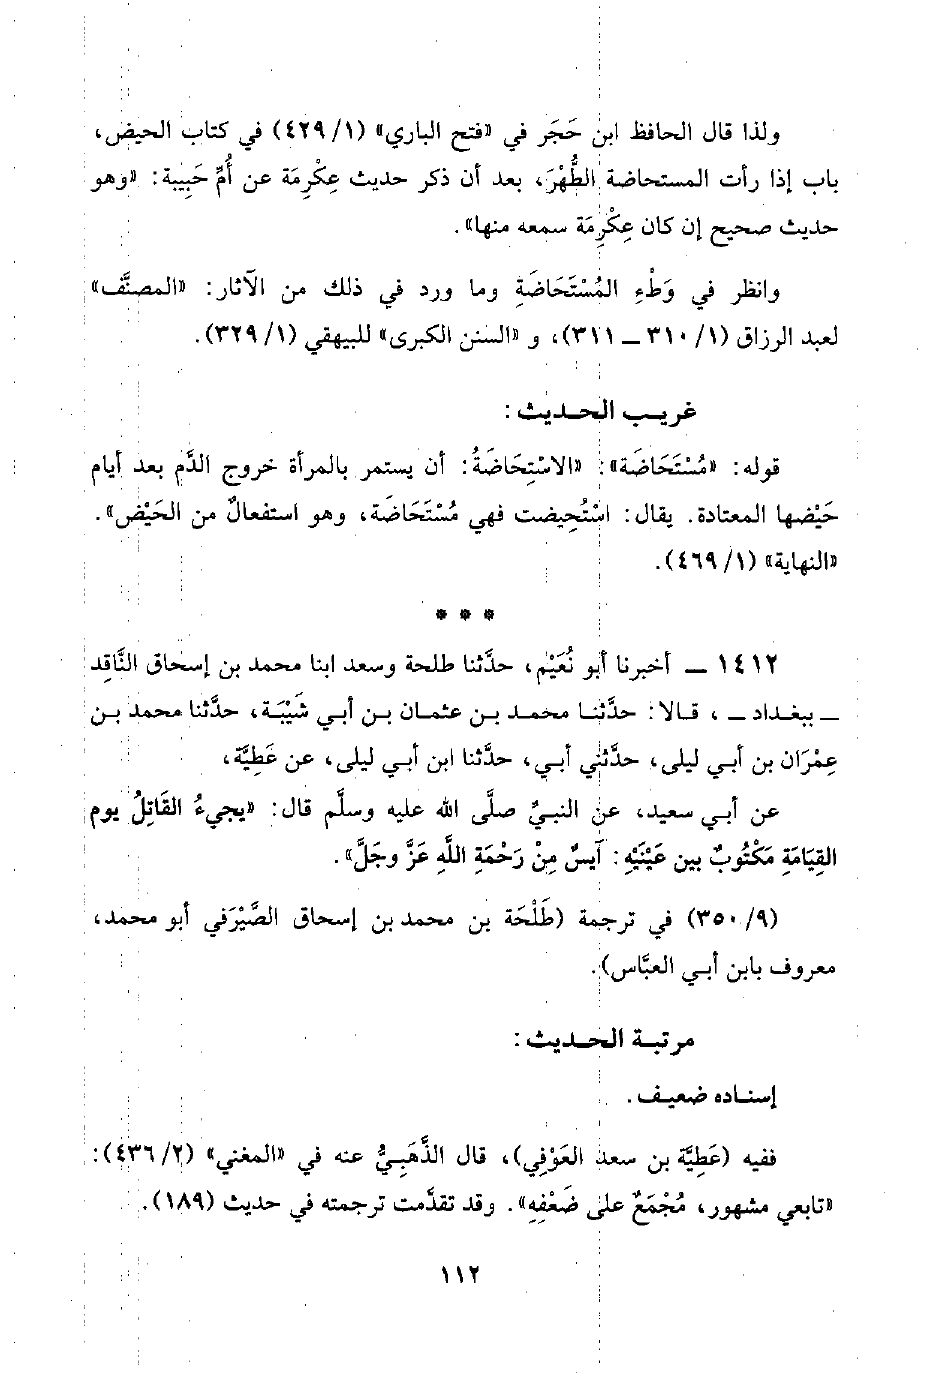 ولذا قال الحافظ ابن حَجَر في «فتح الباري» (١/ ٤٢٩) في كتاب الحيض،
باب إذا رأت المستحاضة الطُّهْرَ، بعد أن ذكر حديث عِكْرِمَة عن أُمِّ حَبِيبة: «وهو
حديث صحيح إن كان عِكْرِمَة سمعه منها».
وانظر في وَطْءِ المُسْتَحَاضَةِ وما ورد في ذلك من الآثار: «المصنَّف»
لعبد الرزاق (١/ ٣١٠ ــ ٣١١)، و «السنن الكبرى» للبيهقي (١/ ٣٢٩).
غريب الحديث:
قوله: «مُسْتَحَاضَة»: «الاسْتِحَاضَةُ: أن يستمر بالمرأة خروج الدَّم بعد أيام
حَيْضها المعتادة. يقال: اسْتُحِيضت فهي مُسْتَحَاضَة، وهو استفعالٌ من الحَيْض».
«النهاية» (١/ ٤٦٩).
* * *
١٤١٢ ــ أخبرنا أبو نُعَيْم، حدَّثنا طلحة وسعد ابنا محمد بن إسحاق النَّاقِد
ــ ببغداد ــ ، قالا: حدَّثنا محمد بن عثمان بن أبي شَيْبَة، حدَّثنا محمد بن
عِمْرَان بن أبي ليلى، حدَّثني أبي، حدَّثنا ابن أبي ليلى، عن عَطِيَّة،
عن أبي سعيد، عن النبيِّ صلَّى الله عليه وسلَّم قال: «يجيءُ القَاتِلُ يوم
القِيَامَةِ مَكْتُوبٌ بين عَيْنَيْهِ: آيَسٌ مِنْ رَحْمَةِ اللَّهِ عَزَّ وجَلَّ».
(٩/ ٣٥٠) في ترجمة (طَلْحَة بن محمد بن إسحاق الصَّيْرَفي أبو محمد،
معروف بابن أبي العبَّاس).
مرتبة الحديث:
إسناده ضعيف.
ففيه (عَطِيَّة بن سعد العَوْفي)، قال الذَّهَبِيُّ عنه في «المغني» (٢/ ٤٣٦):
«تابعي مشهور، مُجْمَعٌ على ضَعْفِهِ». وقد تقدَّمت ترجمته في حديث (١٨٩).
١١٢